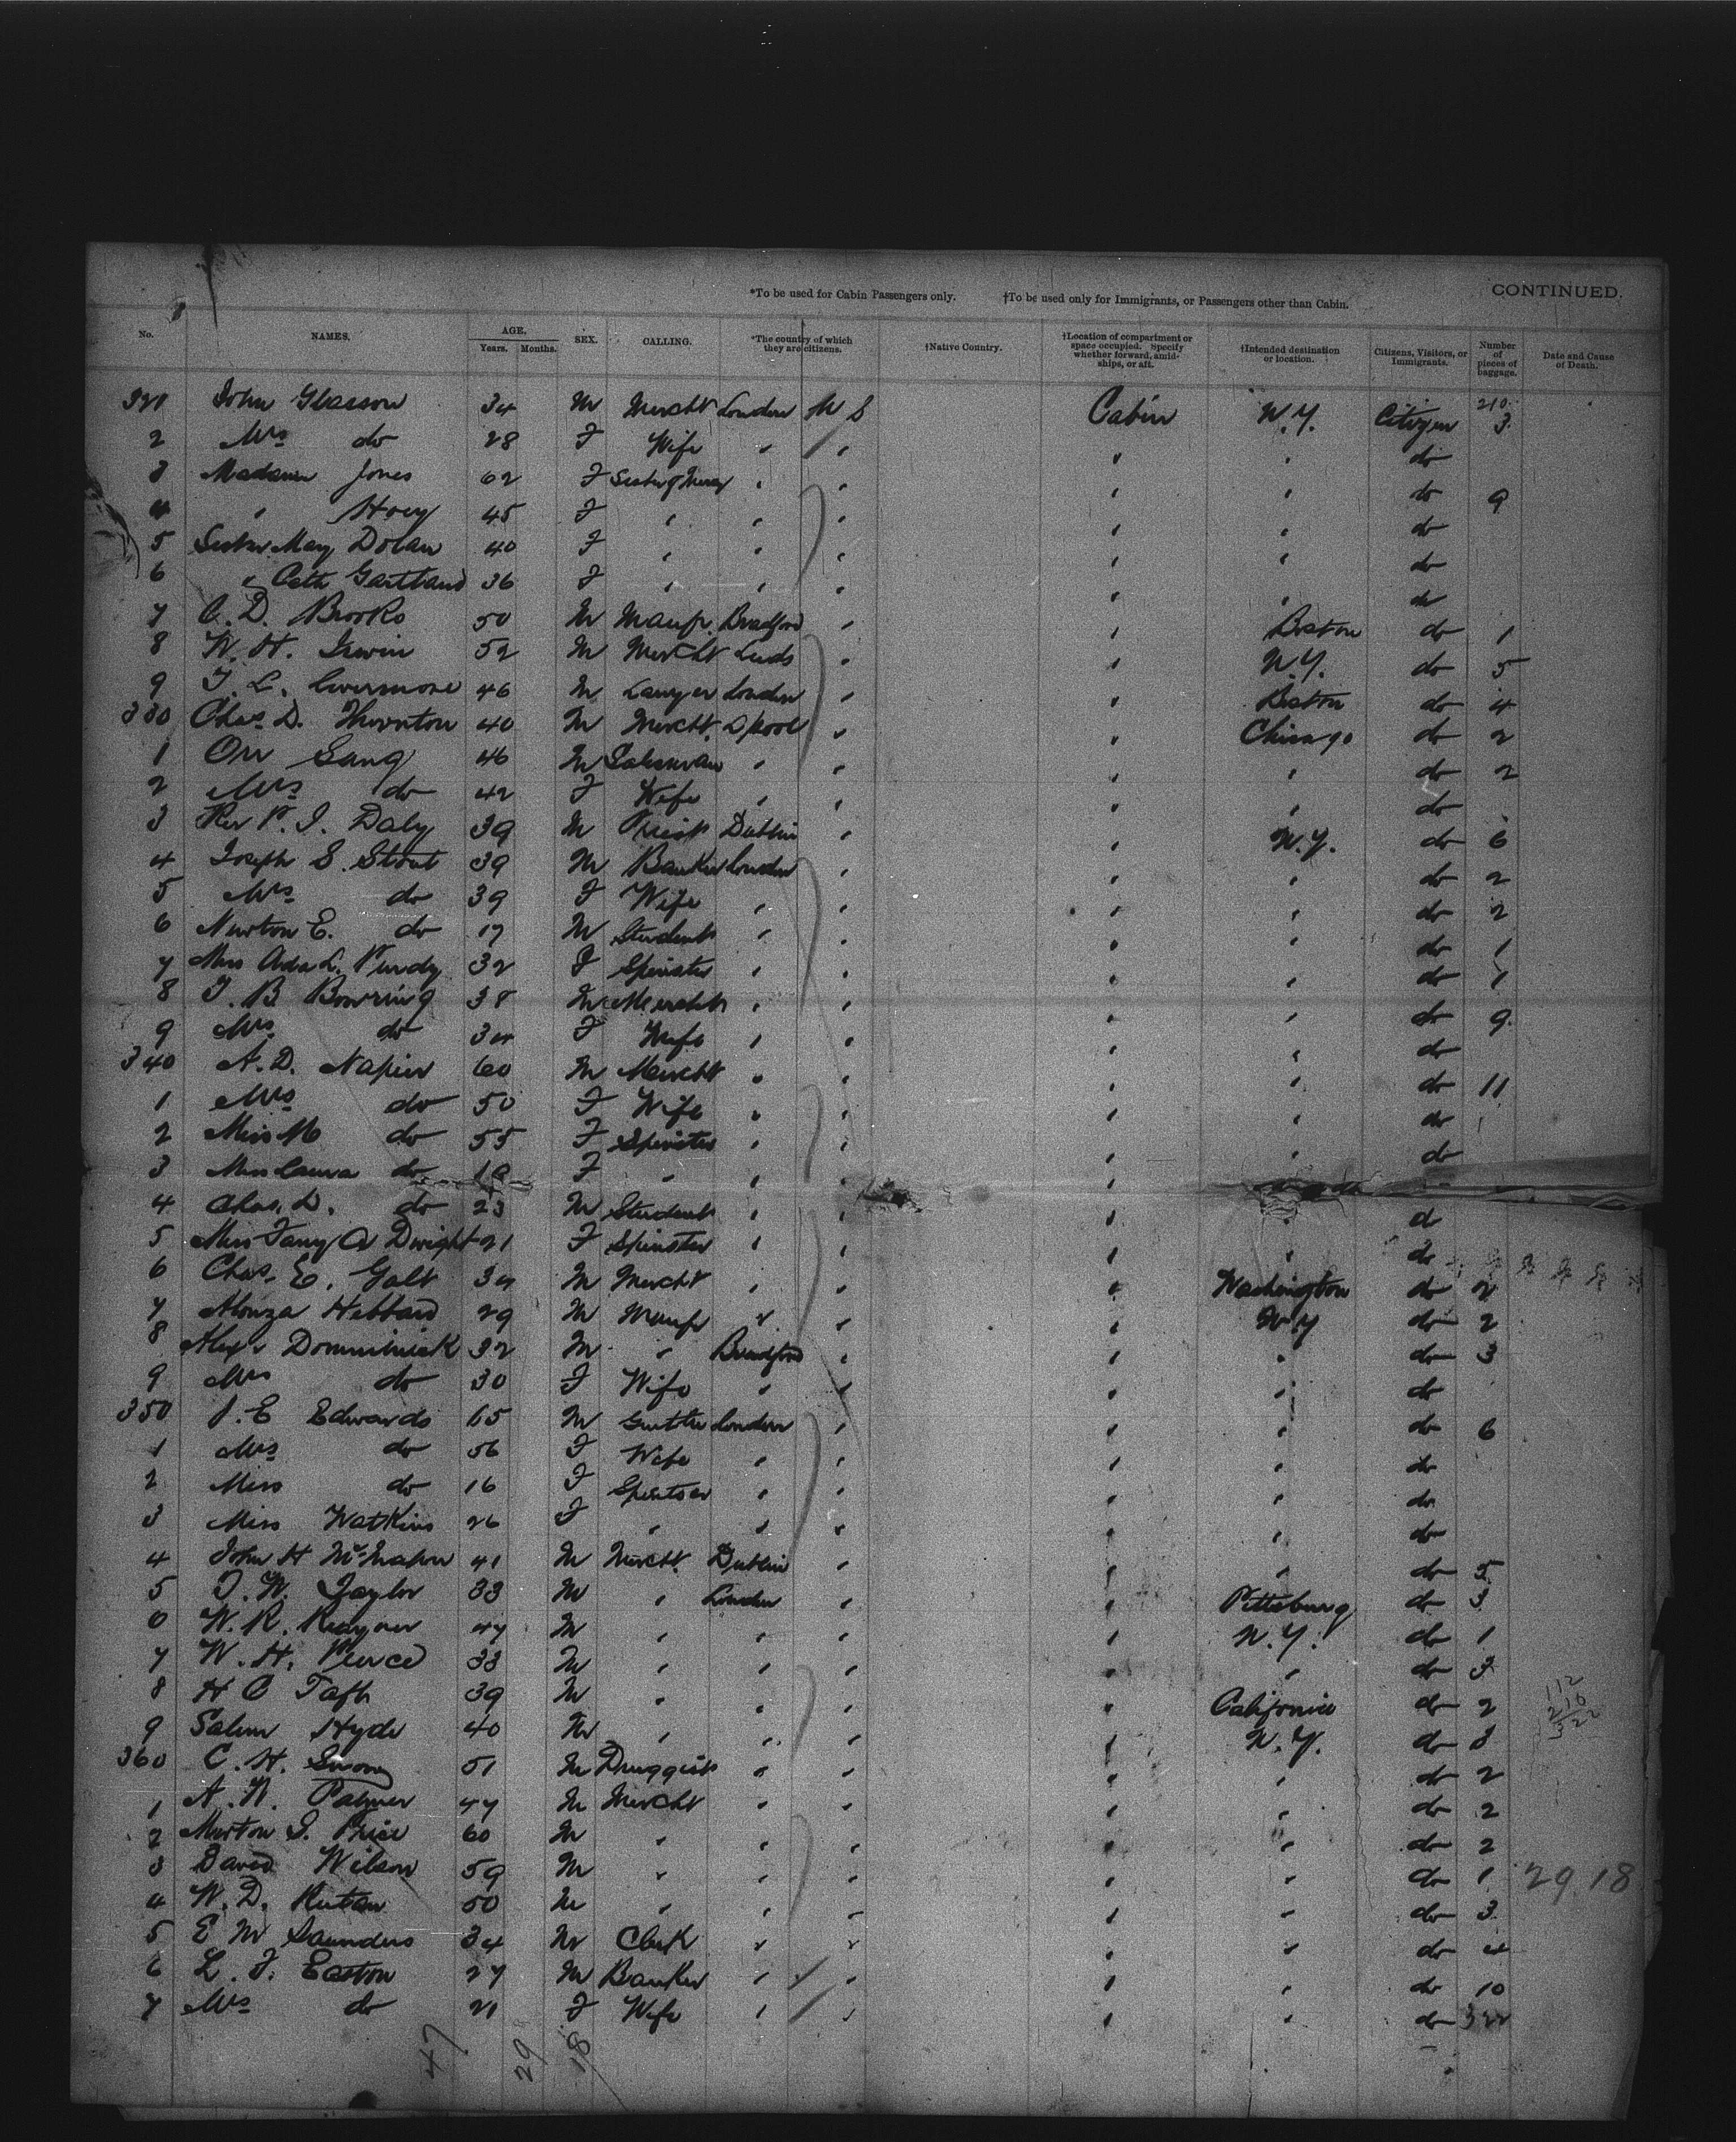 *To be used for Cabin Passengers only. †To be used only for Immigrants, or Passengers other than Cabin. CONTINUED.
No. NAMES. AGE. Years. Months. SEX. CALLING. *The country of which they are citizens. †Native Country. †Location of compartment or space occupied. Specify whether forward, amidships, or aft. †Intended destination or location. Citizens, Visitors, or Immigrants. Number of pieces of baggage. Date and Cause of Death.
210
321 John Glasson 34 M Mercht London U S Cabin N.Y. Citizen 3
2 Mrs do 28 F Wife " " " " do
3 Madame Jones 62 F Sister of Mercy " " " " do 9
4 " Hoey 45 F " " " " " do
5 Sister May Dolan 40 F " " " " " do
6 " Cath Gartland 36 F " " " " " do
7 C. D. Brooks 50 M Manfr. Bradford " " Boston do 1
8 W. H. Irwin 52 M Mercht Leeds " " N.Y. do 5
9 T. L. Livermore 46 M Lawyer London " " Boston do 4
330 Chas. D. Thornton 40 M Mercht. L'pool " " Chicago do 2
1 Orr Sang 46 M Salesman " " " " do 2
2 Mrs do 42 F Wife " " " " do
3 Rev P. J. Daly 39 M Priest Dublin " " N.Y. do 6
4 Joseph S. Stout 39 M Banker London " " " do 2
5 Mrs do 39 F Wife " " " " do 2
6 Newton E. do 17 M Student " " " " do 1
7 Miss Ada L. Purdy 32 F Spinster " " " " do 1
8 T. B Bowring 38 M Mercht " " " " do 9
9 Mrs do 34 F Wife " " " " do
340 A. D. Napier 60 M Mercht " " " " do 11
1 Mrs do 50 F Wife " " " " do
2 Miss M do 55 F Spinster " " " " do
3 Miss Laura do F " " " "
4 Chas. D. do 23 M Student " " " d
5 Miss Fany A Dwight 21 F Spinster " " " do
6 Chas. E. Galt 34 M Mercht " " Washington do 2
7 Alonza Hebbard 29 M Manfr " " " N.Y do 2
8 Alexr Domminick 32 M " Bradford " " " do 3
9 Mrs do 30 F Wife " " " " do
350 J. E Edwards 65 M London " " " do 6
1 Mrs do 56 F Wife " " " " do
2 Miss do 16 F Spinster " " " " do
3 Miss Watkins 26 F " " " " " do
4 John H McMahon 41 M Mercht. Dublin " " " do 5
5 T. W. Taylor 33 M " London " " Pittsburg do 3
6 W. R. Raynor 47 M " " " " N.Y. do 1
7 W. H. Pierce 33 M " " " " " do 3
8 H C Taft 39 M " " " California do 2
9 Salem Hyde 40 M " " " " N.Y. do 3
360 C. H. 51 M Druggist " " " " do 2
1 A. W. Palmer 47 M Mercht " " " " do 2
2 J. Price 60 M " " " " " do 2
3 David Wilson 59 M " " " " " do 1
4 W. D. Rutan 50 M " " " " " do 3
5 E M Saunders 34 M Clerk " " " " do 4
6 L. F. Easton 27 M Banker " " " " do 10
7 Mrs do 21 F Wife " " " " do 322
112
210
322
29.18
47 29 18